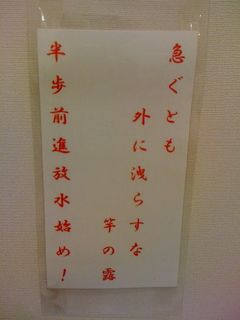 急ぐとも
外に洩らすな
竿の露
半歩前進放水始め！